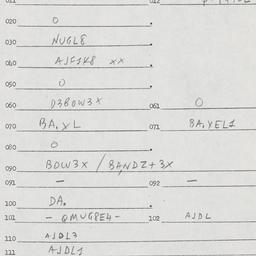 011 012
020 0
030 NUGL8
040 AJF1K8 xx
050 0
060 D3BOW3X 061 0
070 BA.YL 071 BA.YEL1
080 0
090 BOW3X / BANDZ+3X
091 – 092 –
100 DA.
101 - QMUG8E4 - 102 AJDL
110 AJDL3
111 AJDL1